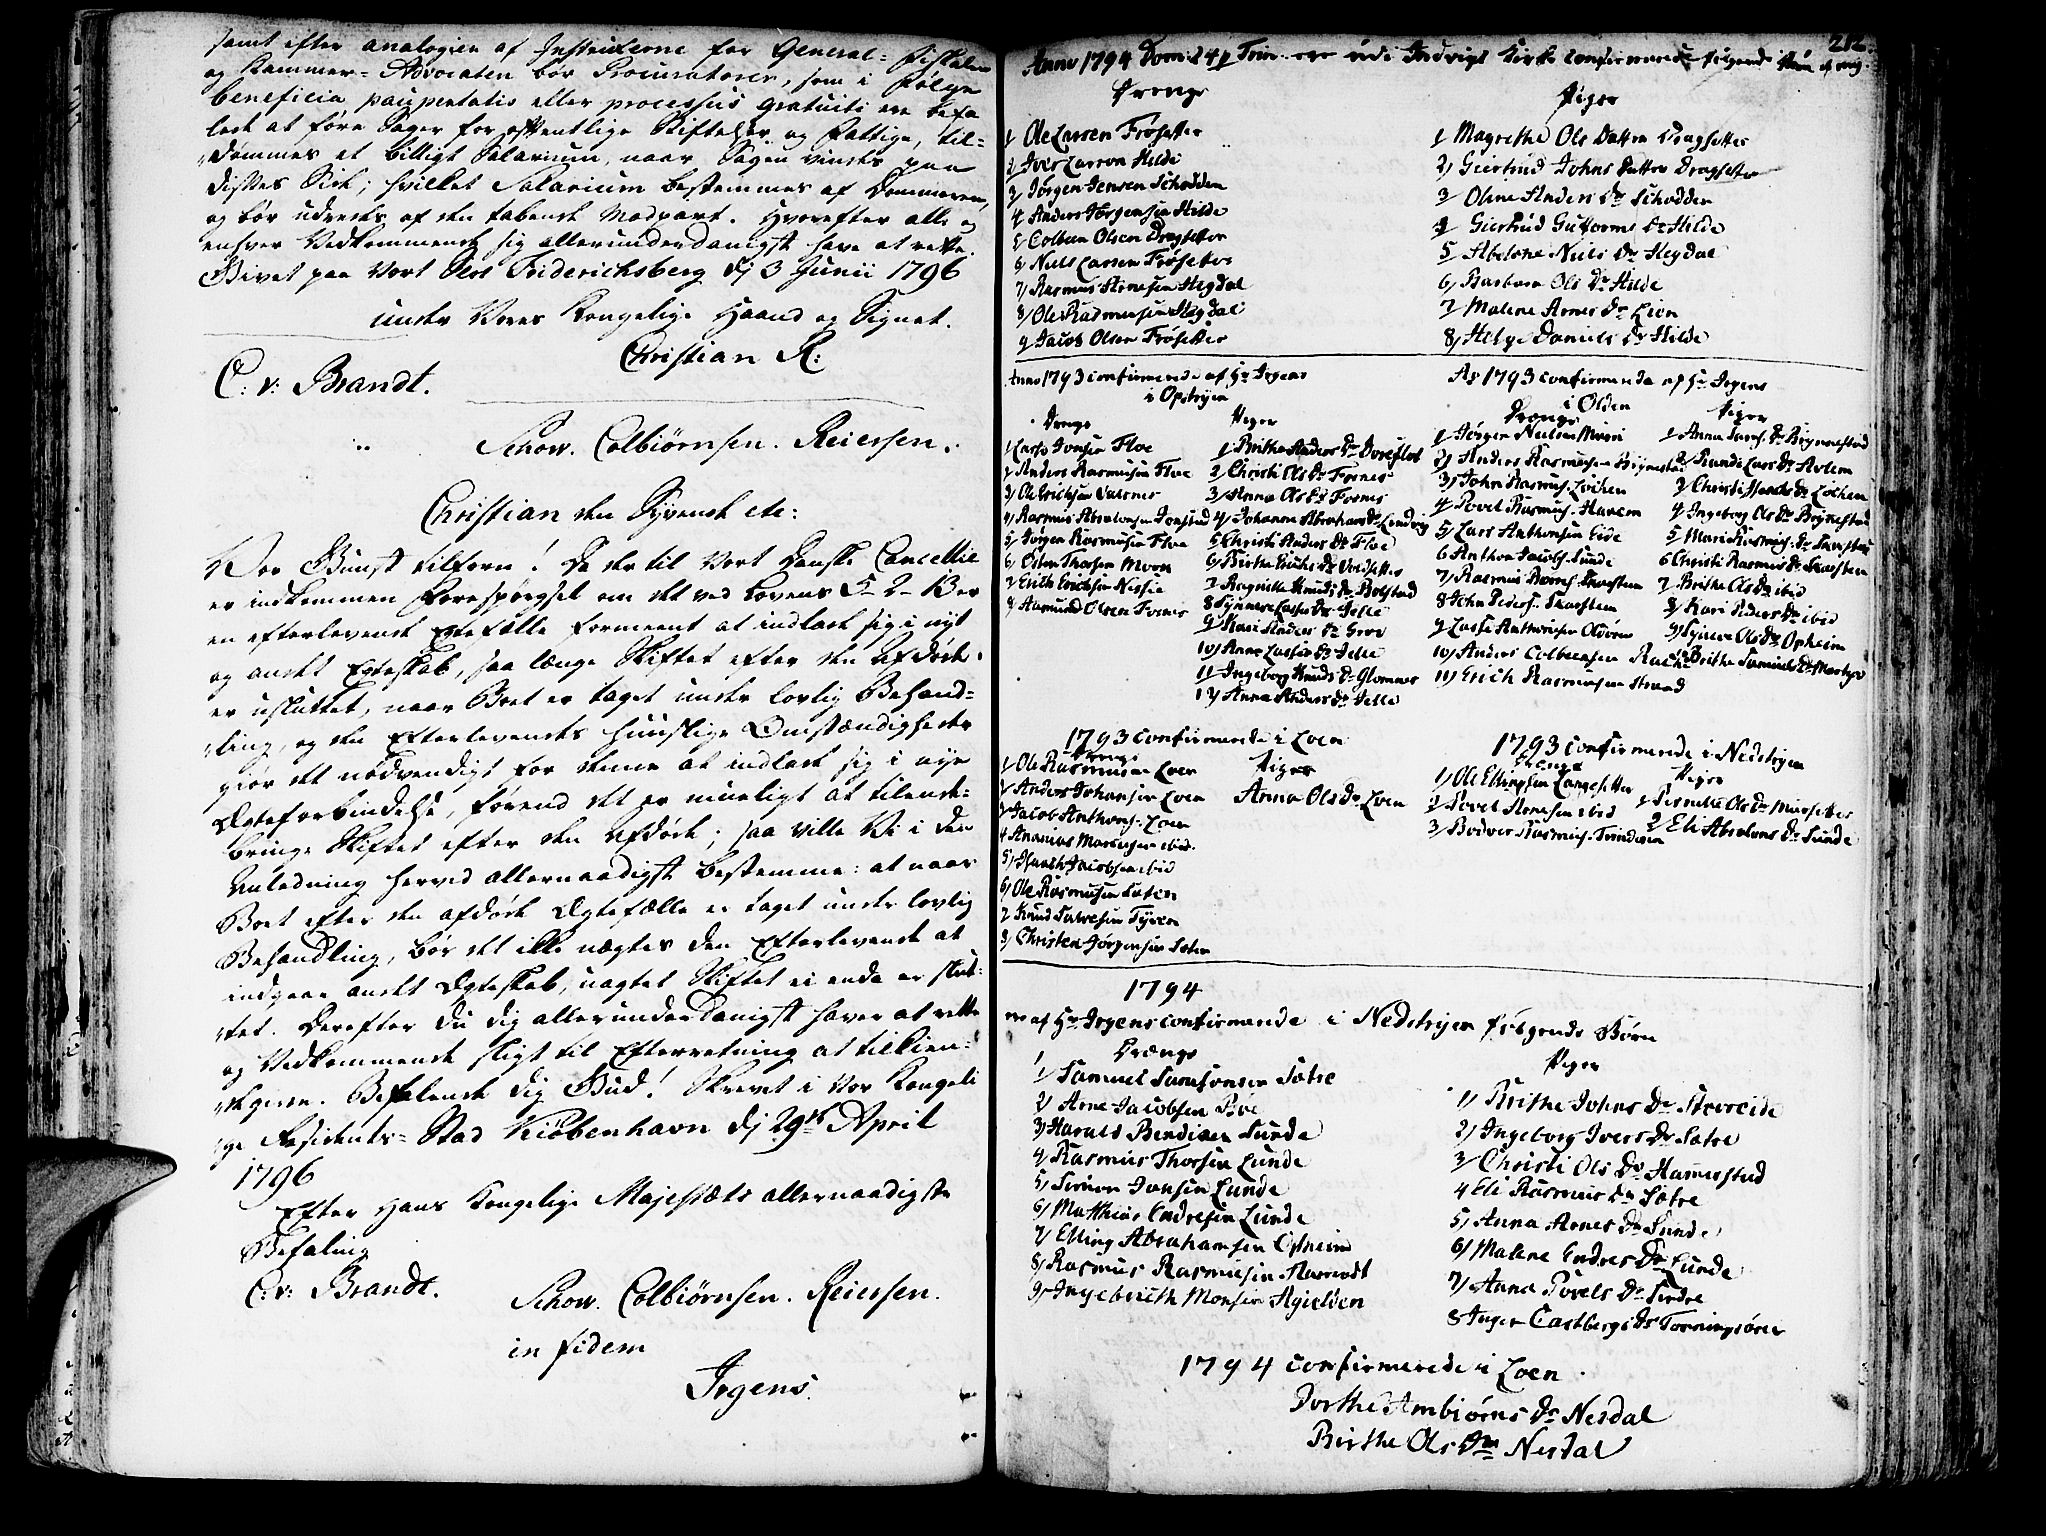 samt efter analogien af Instruxerne for General-Fiskalen
og Kammer-Advocaten bør Procuratorer, som i følge
beneficia paupertatis eller processus gratuiti ere befa
lede at føre Sager for offentlige Stiftelser og Fattige, til-
dømmes et billigt Salarium, naar Sagen vindes paa
disses Side; hvilket Salarium bestemmes af Dommeren,
og bør udredes af den tabende Modpart. Hvorefter alle og
enhver Vedkommende sig allerunderdanigst have at rette.
Givet paa Vort Slot Friderichsberg dj 3 Junii 1796
under Vores Kongelige Haand og Signet.
Christian R:
C: v: Brandt.
Schow. Colbiørnsen. Reiersen.
Christian den Syvende etc:
Vor Gunst tilforn! Da der til Vort Danske Cancellie
er indkommen Forespørgsel om det ved Lovens 5-2-13 er
en efterlevende Egtefælle formeent at indlade sig i nyt
og andet Egteskab, saa længe Skiftet efter den Afdøde
er usluttet, naar Boet er taget under lovlig Behand-
ling, og den Efterlevendes huuslige Omstændigheder
giør det nødvendigt for denne at indlade sig i nye
Ægteforbindelse, førend det er mueligt at tilende-
bringe Skiftet efter den Afdøde; saa ville Vi i den
Anledning herved allernaadigst bestemme: at naar
Boet efter den afdøde Ægtefælle er taget under lovlig
Behandling, bør det ikke nægtes den Efterlevende at
indgaae andet Ægteskab, uagtet Skiftet ei enda er slut-
tet. Derefter du dig allerunderdanigst haver at rette
og Vedkommende sligt til Efterretning at tilkien-
degive. Befalende dig Gud! Skrevet i Vor Kongeli
ge Residents-Stad Kiøbenhavn dj 29de April
1796
Efter Hans Kongelige Majestæts allernaadigste
Befaling
C: v: Brandt.
Schow. Colbiørnsen. Reiersen.
in fidem
Irgens.
212.
Anno 1794 Domin: 4 p Trin: ere udi Indvigs Kirke confirmerede følgende Børn af mig.
Drenge
1 Ole Larsen Frøsetter
2/ Iver Larsen Hilde
3/ Jørgen Jensen Schodden
4 Anders Jørgensen Hilde
5/ Colben Olsen Dragsetter
6/ Niels Larsen Frøsetter
7/ Rasmus Arnesen Hegdal
8/ Ole Rasmusen Hegdal
9 Jacob Olsen Frøsetter
Piger
1 Magrethe Ols Datter Dragsetter
2/ Giertrud Johns Datter Dragsetter
3 Oline Anders Dr Schodden
4 Giertrud Guttorms Dr Hilde
5 Abelone Niels Dr Hegdal
6/ Barbara Ols Dr Hilde
7 Malene Arnes Dr Lien
8/ Helge Daniels Dr Hilde
Anno 1793 confirmerede af Hr Irgens
i Opstryen
Drenge
1 Lasse Jonsen Floe
2 Anders Rasmusen Floe
3/ Ole Erichsen
4/ Rasmus Absalonsen
5/ Jørgen Rasmusen Floe
6/ Osten Thorsen Moen
7 Erich Erichsen
8/ Aamund Olsen Fornes
Piger
1 Brithe Anders Dr
2 Christi Ols Dr Fornes
3/ Anna Ols Dr Fornes
4/ Johanne Abrahams Dr
5 Christi Anders Dr Floe
6/ Birthe Erichs Dr
7 Ragnilde Knuds Dr Bolstad
8 Synneve Lasses Dr Jelle
9 Kari Anders Dr Grov
10/ Anna Lasses Dr Jelle
11 Ingeborg Knuds Dr Glommes
12/ Anna Anders Dr Jelle
Ao 1793 confirmerede af Hr Irgens
i Olden
Drenge
1 Jørgen Nielsen Muri
2/ Anders Rasmusen
3/ John Rasmus. Lochen
4 Povel Rasmus. Haaem
5/ Lars Anthonsen Eide
6 Anthon Jacobs. Sunde
7/ Rasmus Rasms. Skarsteen
8 John Peders. Skarsteen
9 Lasse Anthonsen Oldøren
10/ Anders Colbensen
11/ Erich Rasmusen Strand
Piger
1 Anna Lars Dr Brynnestad
2 Rande Lars Dr
3 Christi Dr Lochen
4 Ingeborg Ols Dr Brynestad
5 Mari Rasmus. Dr
6 Christi Rasmus Dr Skarsteen
7 Brithe Ols Dr ibid
8/ Kari Peders Dr ibid
9/ Synnve Ols Dr Opheim
Brithe Samuels Dr
1793 confirmerede i Loen
Drenge
1 Ole Rasmusen Loen
2 Anders Johansen Loen
3 Jacob Anthons. Loen
4 Ananias ibid.
5/ Jacobsen ibid
6/ Ole Rasmusen Sæten
7 Knud
8/ Christen Jørgensen Sæten
Piger
Anna Ols Dr Loen
1793 confirmerede i Nedstryen
Drenge
1/ Ole Ellingsen Langesetter
2 Povel Arnesen ibid
3/ Rasmus.
Piger
1 Pernelle Ols Dr
2/ Eli Absalons Dr Sunde
1794
ere af Hr Irgens confirmerede i Nedstryen følgende Børn
Drænge
1/ Samuel Samsonsen Sætre
2/ Arne Jacobsen
3/ Harald Bendixen Lunde
4 Rasmus Thorsen Lunde
5/ Simon Jonsen Lunde
6/ Matthias Endresen Lunde
7/ Elling Abrahamsen Opheim
8/ Rasmus Rasmusen
9 Ingebricth Monsen Hjelden
Piger
1/ Brithe Johns Dr
2/ Ingeborg Ivers Dr Sætre
3/ Christi Ols Dr Hammerstad
4 Eli Rasmus Dr Sætre
5/ Anna Arnes Dr Sunde
6/ Malene Endres Dr Lunde
7/ Anna Povels Dr
8 Inger Castbergs Dr Tonningsøren
1794 confirmerede i Loen
Dorthe Ambiørns Dr Nesdal
Birthe Ols Dr Nesdal